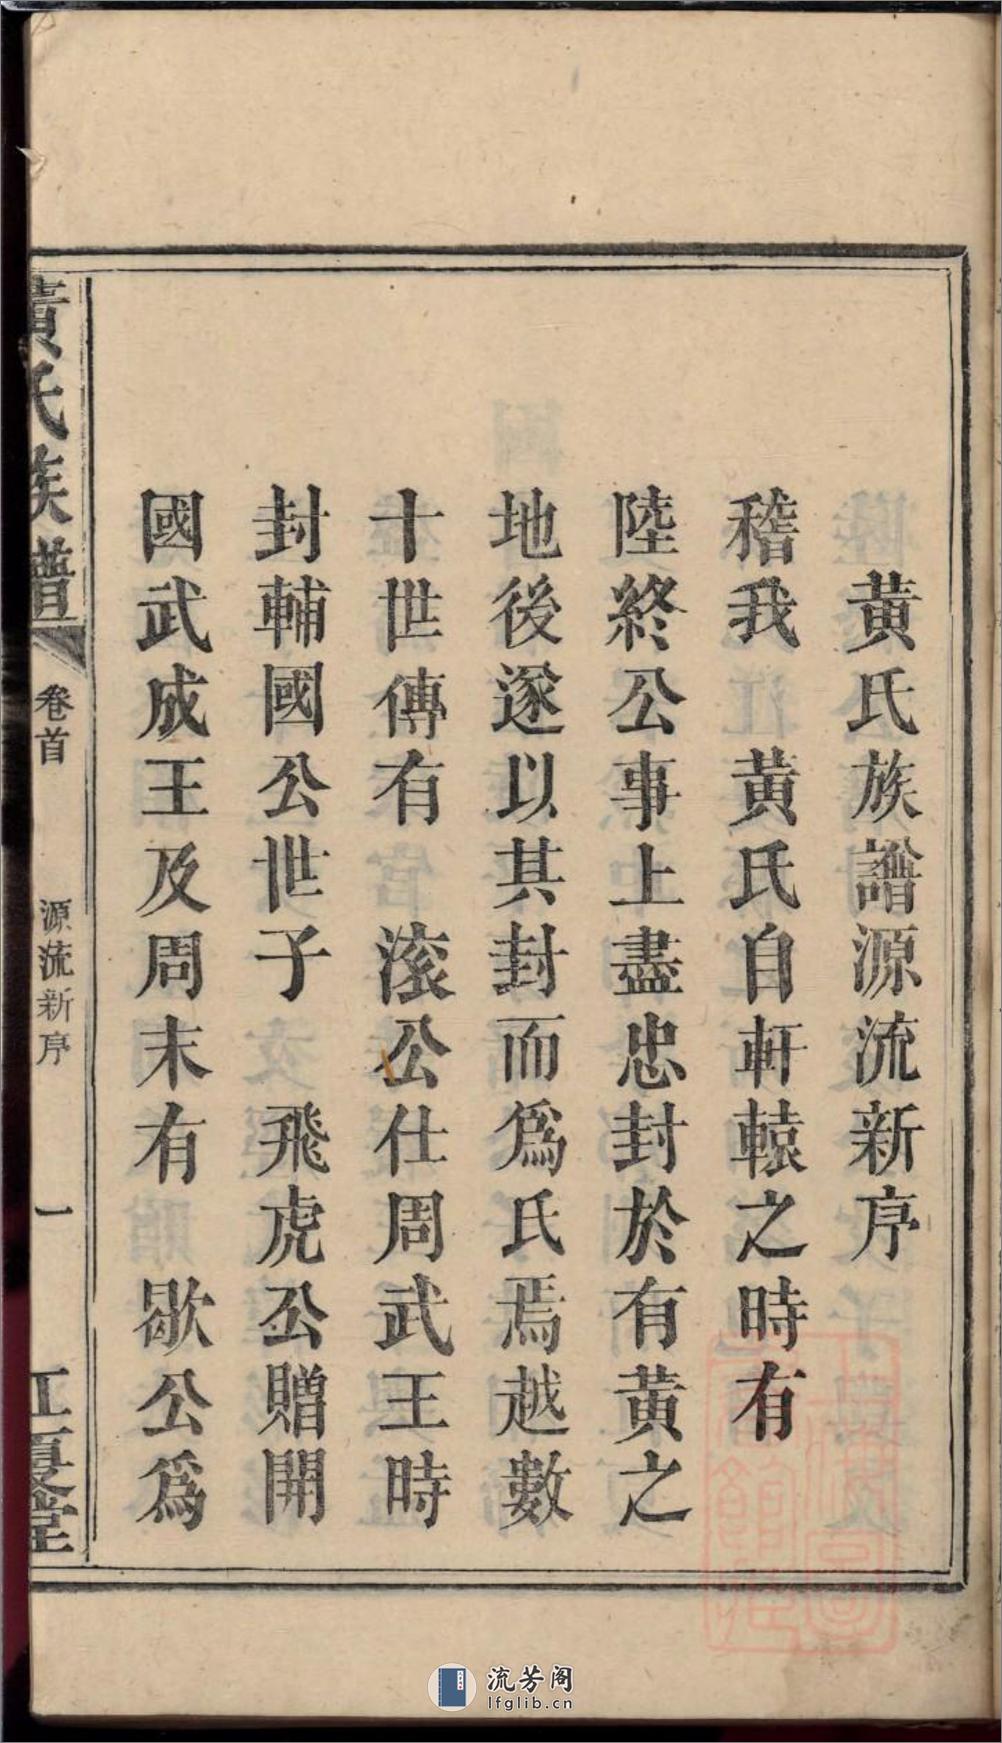 黄氏族譜源流新序
稽我 黄氏自軒轅之時有
陸終公事上盡忠封於有黄之
地後遂以其封而爲氏焉越數
十世傳有 滚公仕周武王時
封輔國公世子 飛虎公贈開
國武成王及周末有 歇公爲
黄氏族譜 卷首 源流新序 一 江夏堂
流芳阁
lfglib.cn